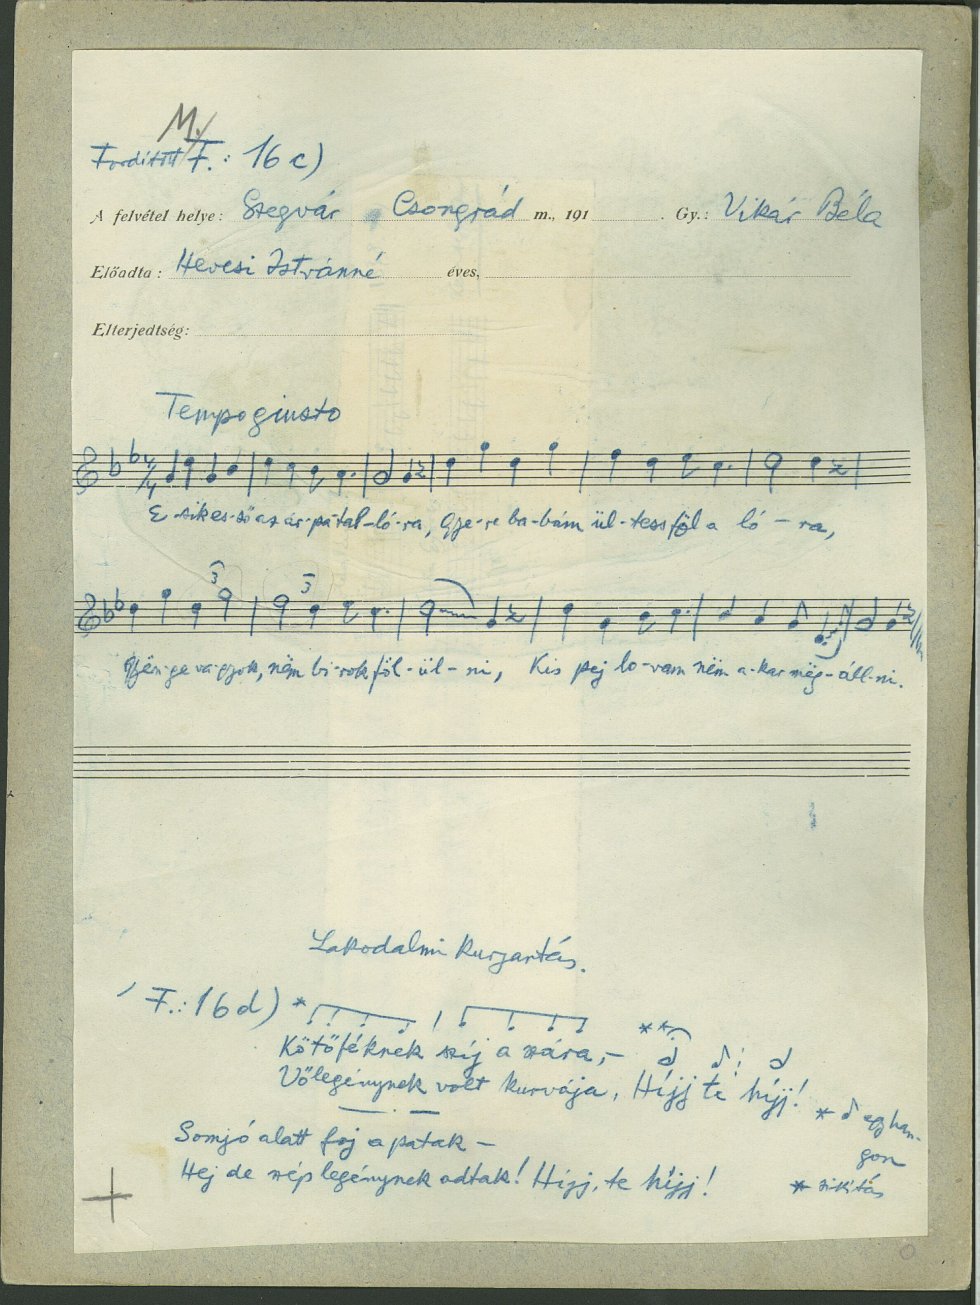 M.
Fordított F.: 16 c)
A felvétel helye: Szegvár Csongrád m., 191 . Gy.: Vikár Béla
Előadta: Hevesi Istvánné éves,
Elterjedtség:
Tempo giusto
4/4
E-sik es-ső az ár-pa tal-ló-ra, Gye-re ba-bám ül-tess föl a ló-ra,
3 3
Gyën-ge va-gyok, nëm bi-rok föl-ül-ni, Kis pej lo-vam nëm a-kar mëg-áll-ni.
Lakodalmi kurjantás.
F.: 16 d) *
**
Kötőféknek szíj a szára, –
Vőlegénynek volt kurvája, Híjj te híjj!
* egy han-
gon
Somjó alatt foj a patak –
Hej de szép legénynek adtak! Híjj, te híjj!
* sikítás